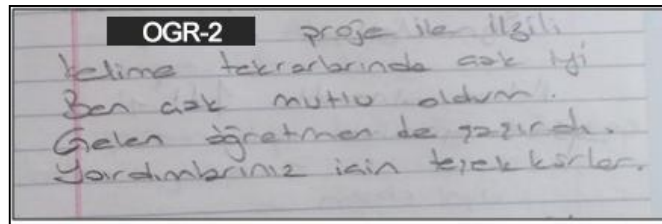 OGR-2 proje ile ilgili
kelime tekrarlarında çok iyi
Ben çok mutlu oldum.
Gelen öğretmen de
Yardımlarınız için teşekkürler.